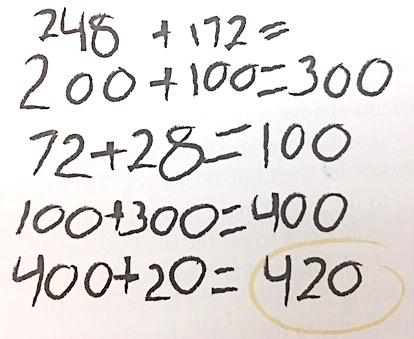 248 + 172 =
200+100=300
72+28=100
100+300=400
400+20= 420